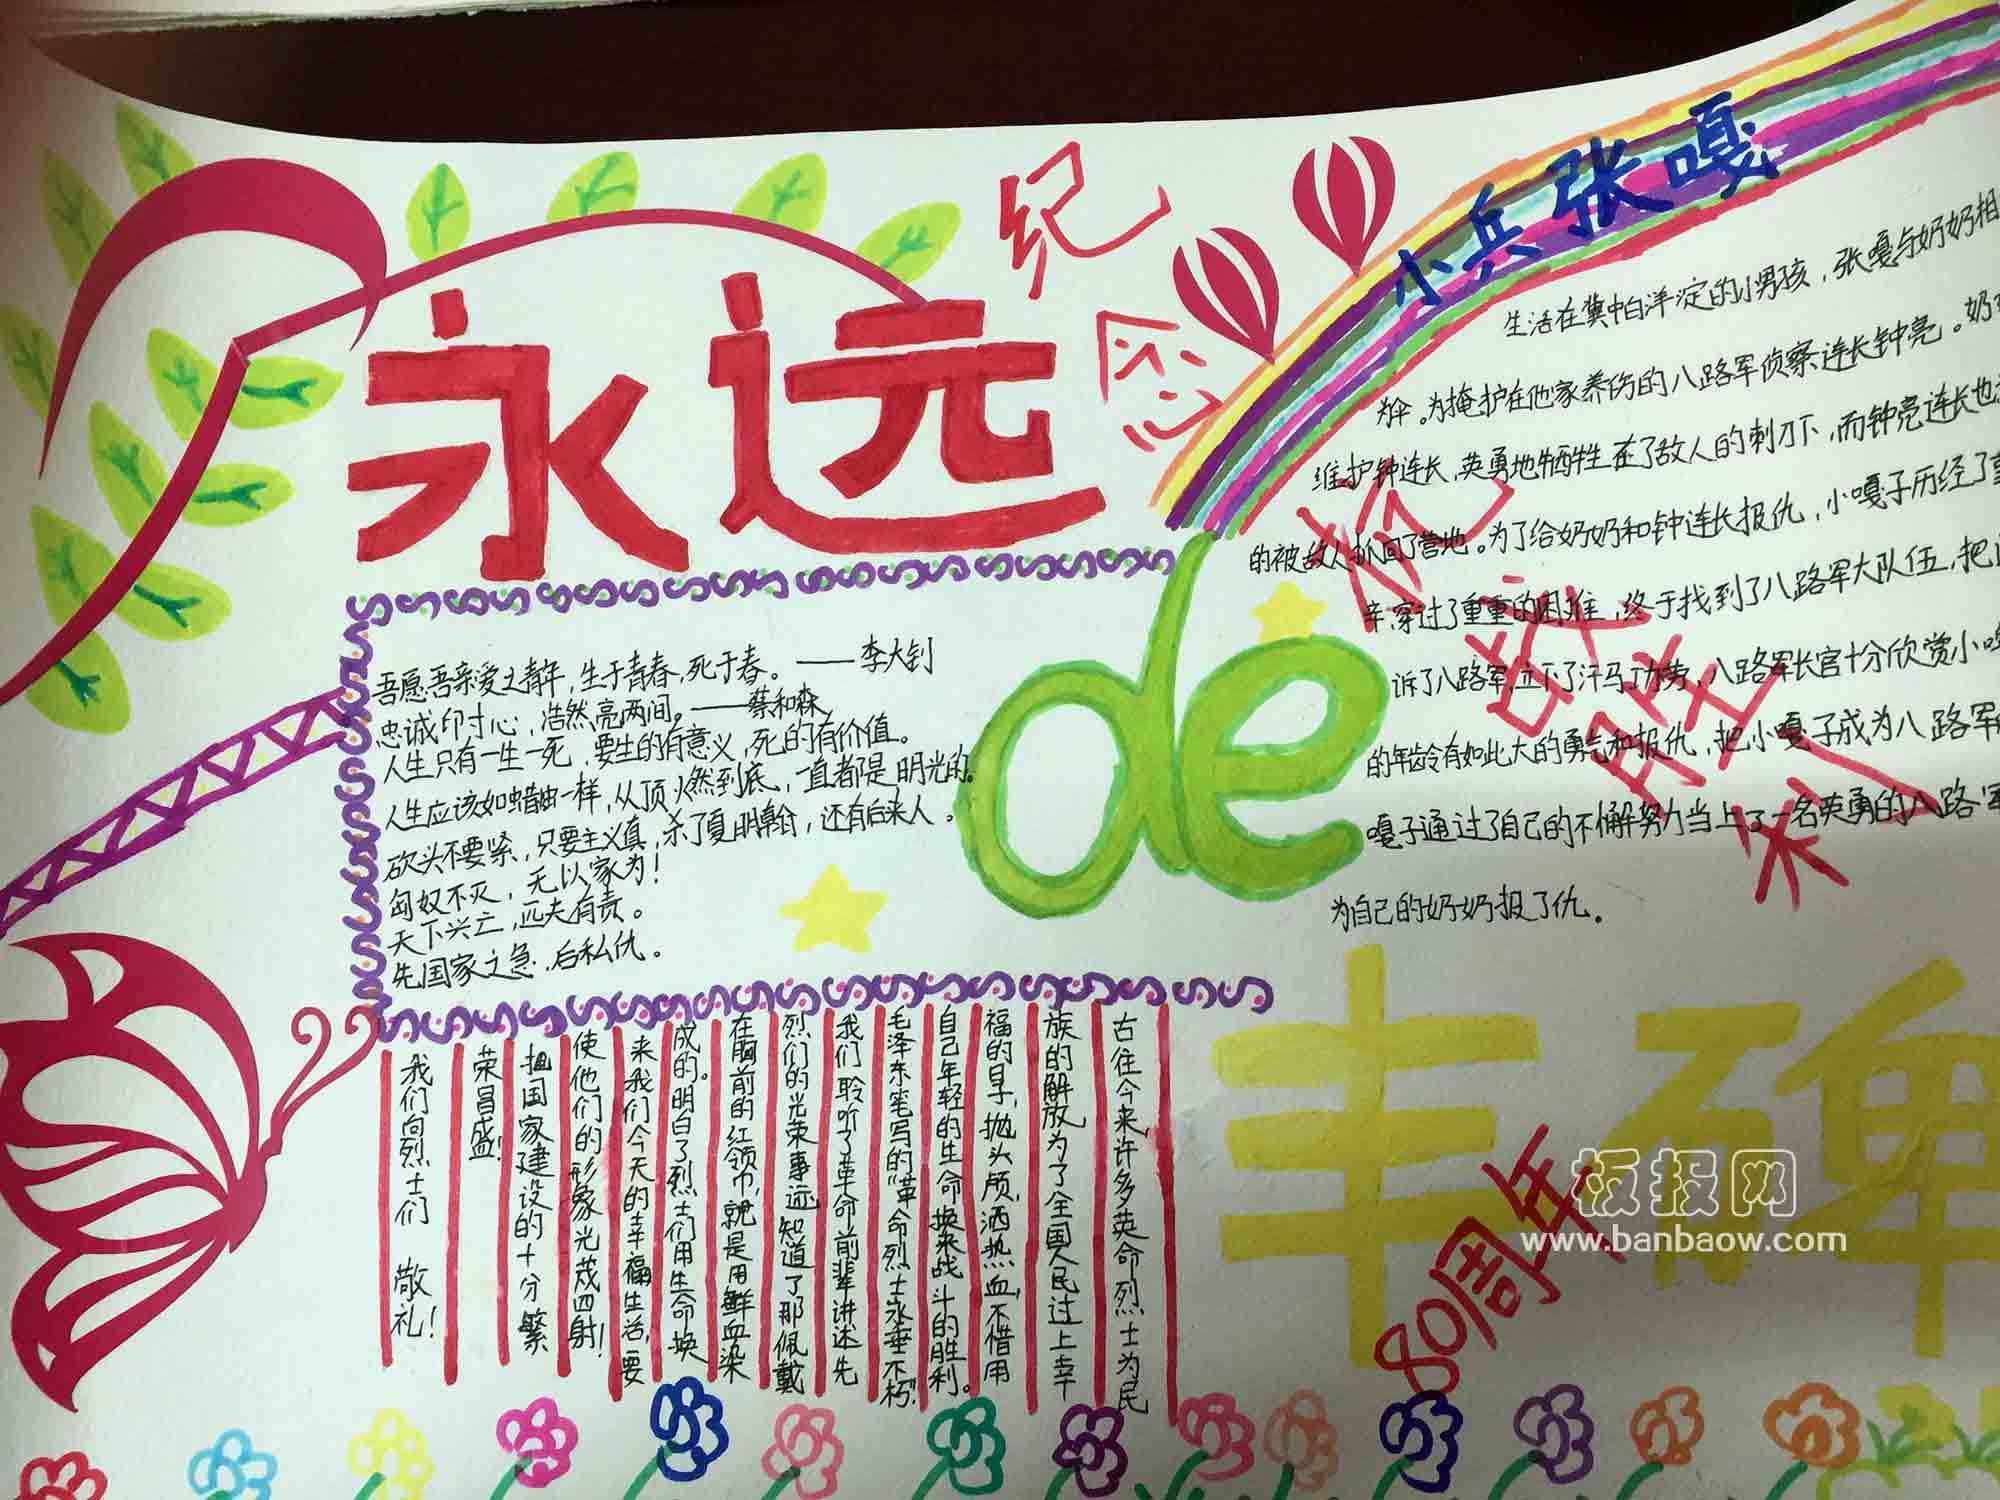 永远
de
丰碑
纪念
抗战
胜利
80周年
小兵张嘎
生活在冀中白洋淀的小男孩，张嘎与奶奶相
为伞。为掩护在他家养伤的八路军侦察连长钟亮。奶
维护钟连长，英勇地牺牲在了敌人的刺刀下，而钟亮连长也
的被敌人抓回了营地。为了给奶奶和钟连长报仇，小嘎子历经了
辛穿过了重重的困难，终于找到了八路军大队伍，把
诉了八路军立下了汗马功劳，八路军长官十分欣赏小
的年龄有如此大的勇气和报仇，把小嘎子成为八路军
嘎子通过了自己的不懈努力当上了一名英勇的八路军
为自己的奶奶报了仇。
吾愿吾亲爱之青年，生于青春，死于春。——李大钊
忠诚印寸心，浩然亮两间。——蔡和森
人生只有一生一死，要生的有意义，死的有价值。
人生应该如蜡烛一样，从顶燃到底，一直都是明光的。
砍头不要紧，只要主义真，杀了夏明翰，还有后来人。
匈奴不灭，无以家为！
天下兴亡，匹夫有责。
先国家之急，后私仇。
古往今来，许多英命烈士为民
族的解放为了全国人民过上幸
福的日子，抛头颅，洒热血，不惜用
自己年轻的生命换来战斗的胜利。
毛泽东笔写的“革命烈士永垂不朽”
我们聆听了革命前辈讲述先
烈们的光荣事迹，知道了那佩戴
在胸前的红领巾，就是用鲜血染
成的。明白了烈士们用生命换
来我们今天的幸福生活，要
使他们的形象光茂四射！
把国家建设的十分繁
荣昌盛！
我们向烈士们 敬礼！
板报网
www.banbaow.com